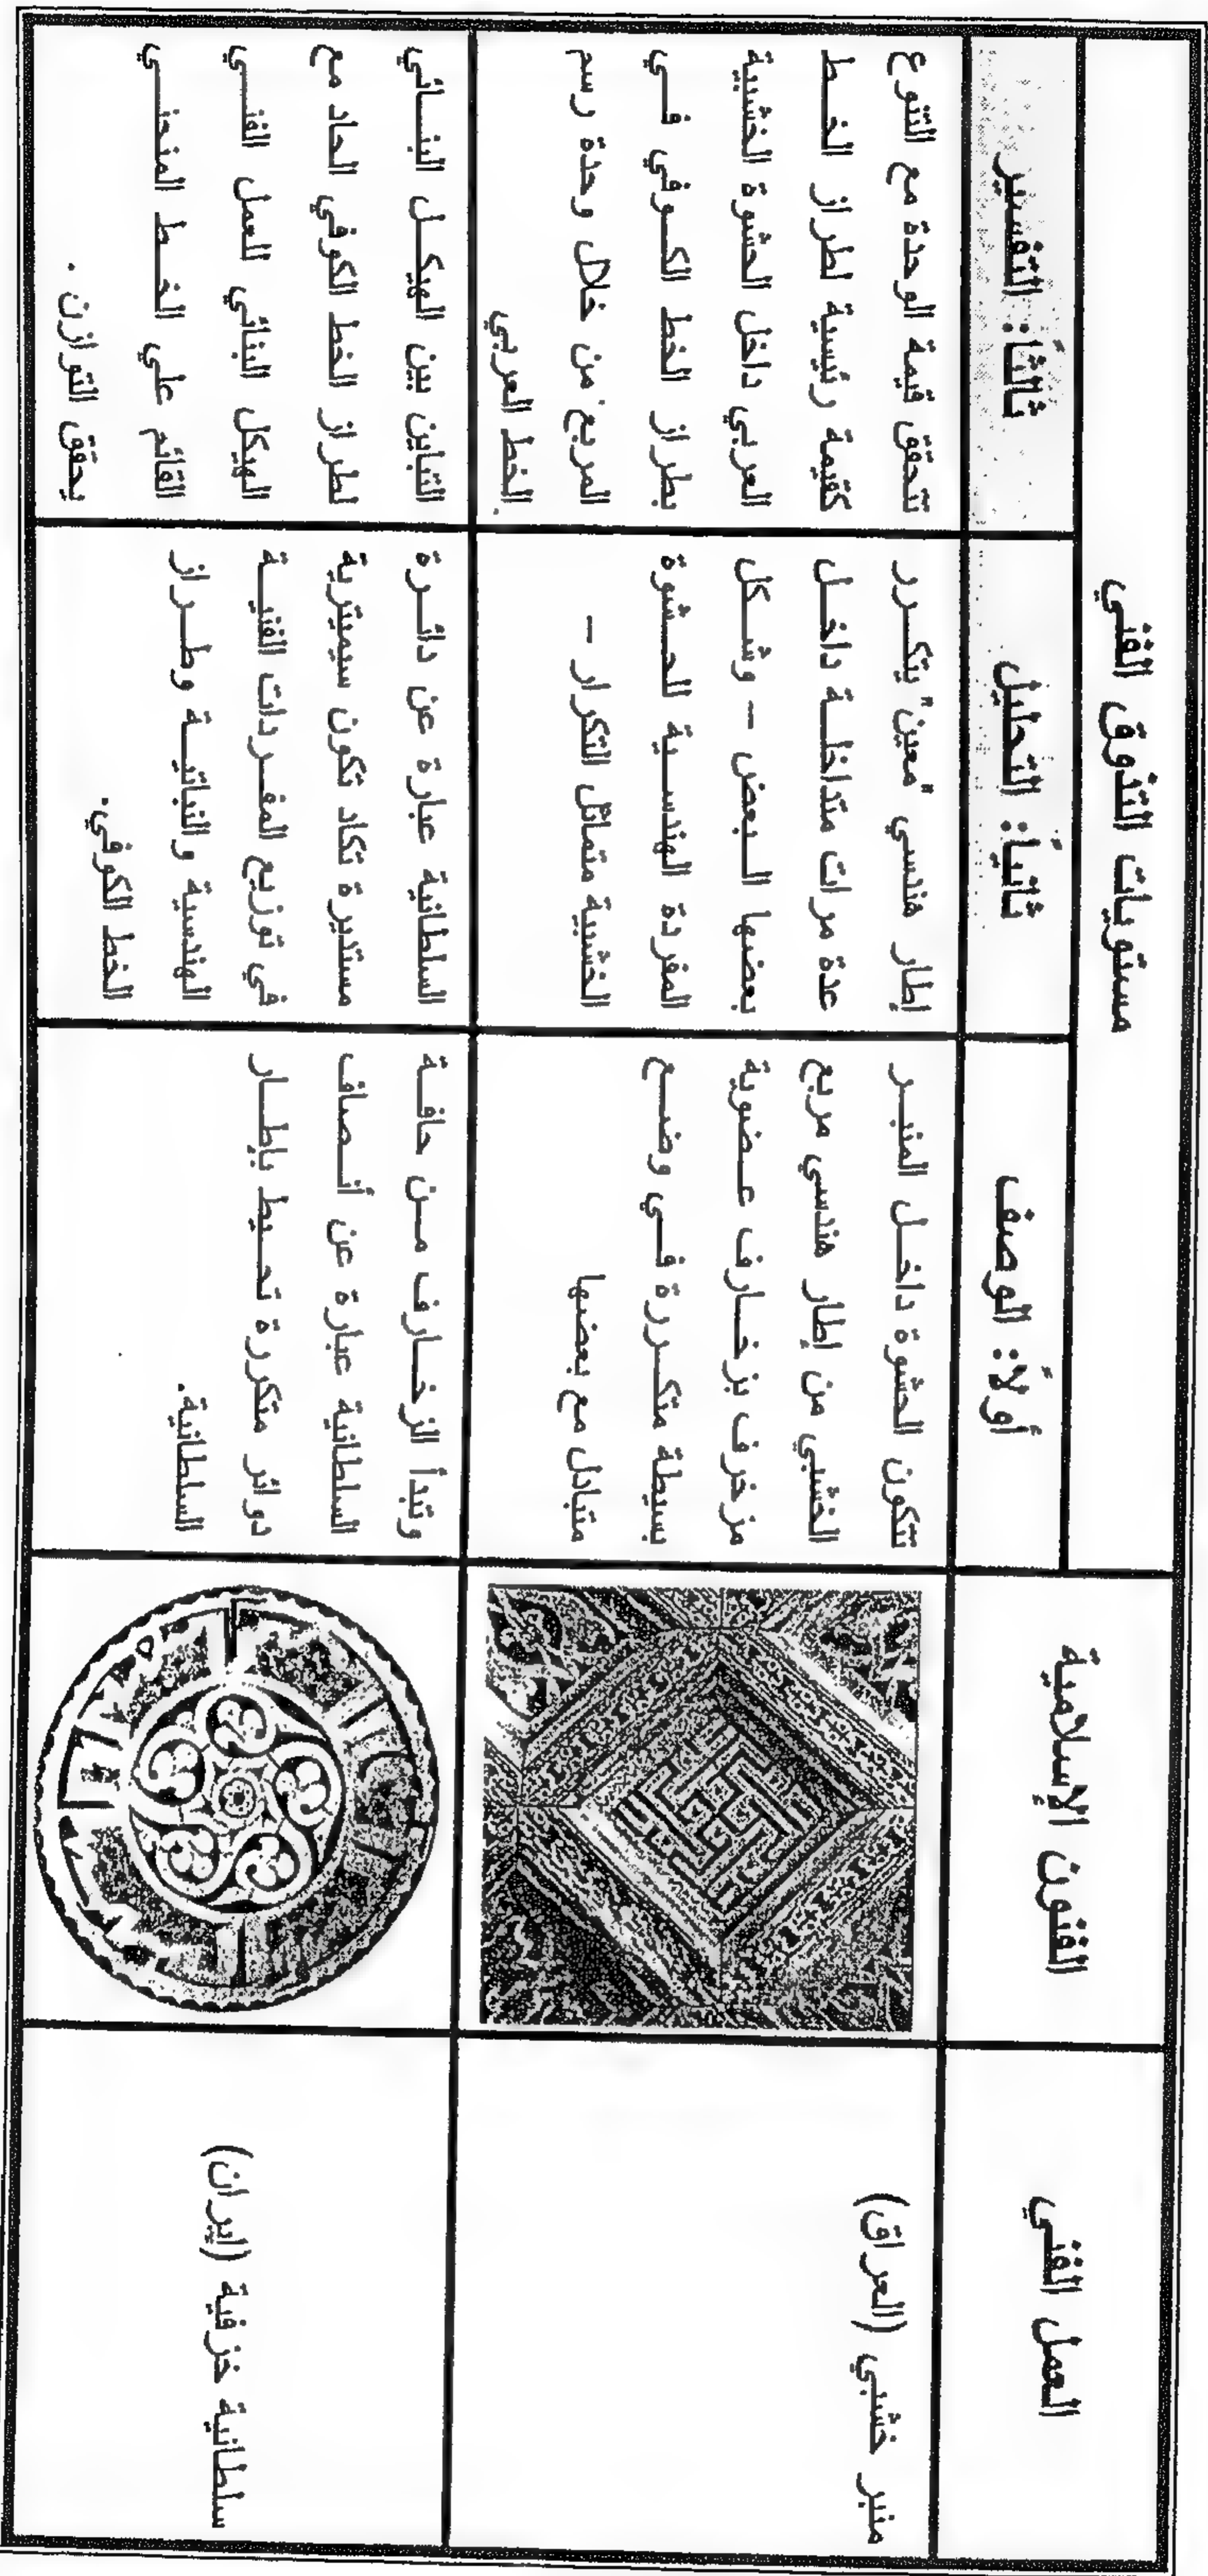 العمل الفني
الفنون الإسلامية
مستويات التذوق الفني
أولاً: الوصف
ثانياً: التحليل
ثالثاً: التفسير
منبر خشبي (العراق)
تتكون الحشوة داخل المنبر
الخشبي من إطار هندسي مربع
مزخرف بزخارف عضوية
بسيطة متكررة في وضع
متبادل مع بعضها
إطار هندسي "معين" يتكرر
عدة مرات متداخلة داخل
بعضها البعض – وشكل
المفردة الهندسية للحشوة
الخشبية متماثل التكرار –
تتحقق قيمة الوحدة مع التنوع
كقيمة رئيسية لطراز الخط
العربي داخل الحشوة الخشبية
بطراز الخط الكوفي في
المربع من خلال وحدة رسم
الخط العربي.
سلطانية خزفية (إيران)
وتبدأ الزخارف من حافة
السلطانية عبارة عن أنصاف
دوائر متكررة تحيط بإطار
السلطانية.
السلطانية عبارة عن دائرة
مستديرة تكاد تكون سيميترية
في توزيع المفردات الفنية
الهندسية والنباتية وطراز
الخط الكوفي.
التباين بين الهيكل البنائي
لطراز الخط الكوفي الحاد مع
الهيكل البنائي للعمل الفني
القائم علي الخط المنحني
يحقق التوازن .